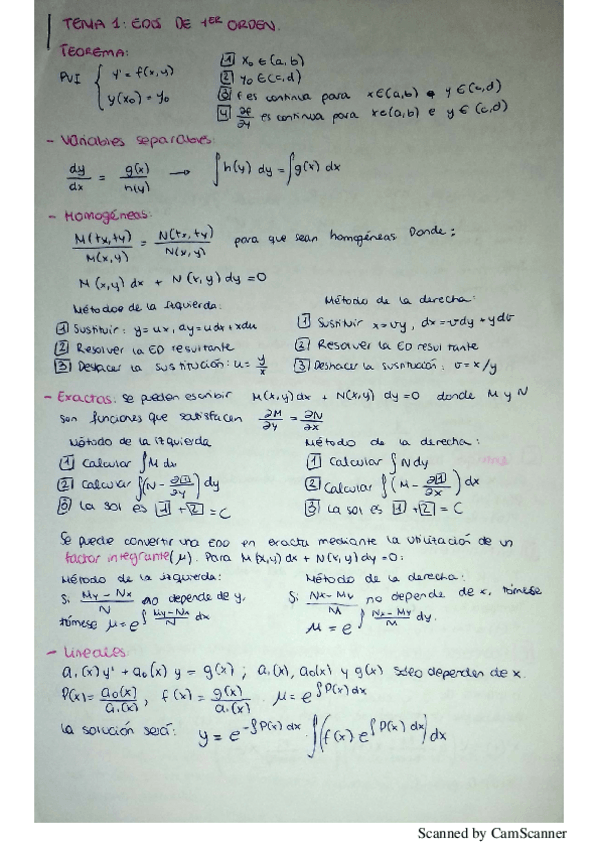 TEMA 1: EDOS DE 1ER ORDEN.
TEOREMA:
PVI { y' = f(x,y)
y(x₀) = y₀
1 x₀ ∈ (a,b)
2 y₀ ∈ (c,d)
3 f es continua para x∈(a,b) e y ∈ (c,d)
4 ∂f/∂y es continua para x∈(a,b) e y ∈ (c,d)
- Variables separables:
dy/dx = g(x)/h(y) → ∫h(y) dy = ∫g(x) dx
- Homogéneas:
M(tx,ty)/M(x,y) = N(tx,ty)/N(x,y) para que sean homogéneas Donde:
M(x,y) dx + N(x,y) dy = 0
Método de la izquierda:
1 Sustituir: y = ux, dy = udx + xdu
2 Resolver la ED resultante
3 Deshacer la sustitución: u = y/x
Método de la derecha:
1 Sustituir x = vy, dx = vdy + ydv
2 Resolver la ED resultante
3 Deshacer la sustitución: v = x/y
- Exactas: se pueden escribir M(x,y) dx + N(x,y) dy = 0 donde M y N
son funciones que satisfacen ∂M/∂y = ∂N/∂x
Método de la izquierda
1 Calcular ∫M dx
2 Calcular ∫(N - ∂1/∂y) dy
3 la sol es 1 + 2 = C
Método de la derecha:
1 Calcular ∫N dy
2 Calcular ∫(M - ∂1/∂x) dx
3 la sol es 1 + 2 = C
Se puede convertir una EDO en exacta mediante la utilización de un
factor integrante (μ). Para M(x,y) dx + N(x,y) dy = 0:
Método de la izquierda:
Si (My - Nx)/N no depende de y,
tómese μ = e^∫(My-Nx)/N dx
Método de la derecha:
Si (Nx - My)/M no depende de x, tómese
μ = e^∫(Nx-My)/M dy.
- Lineales
a₁(x) y' + a₀(x) y = g(x) ; a₁(x), a₀(x) y g(x) sólo dependen de x.
P(x) = a₀(x)/a₁(x), f(x) = g(x)/a₁(x). μ = e^∫P(x) dx
La solución será: y = e^-∫P(x) dx · ∫(f(x) e^∫P(x) dx) dx
Scanned by CamScanner